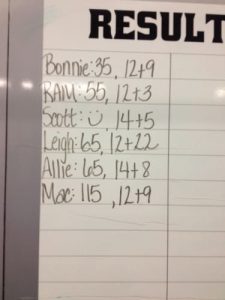 RESULT
Bonnie: 35, 12+9
RAM: 55, 12+3
Scott: :) 14+5
Leigh: 65, 12+22
Allie: 65, 14+8
Mac: 115, 12+9